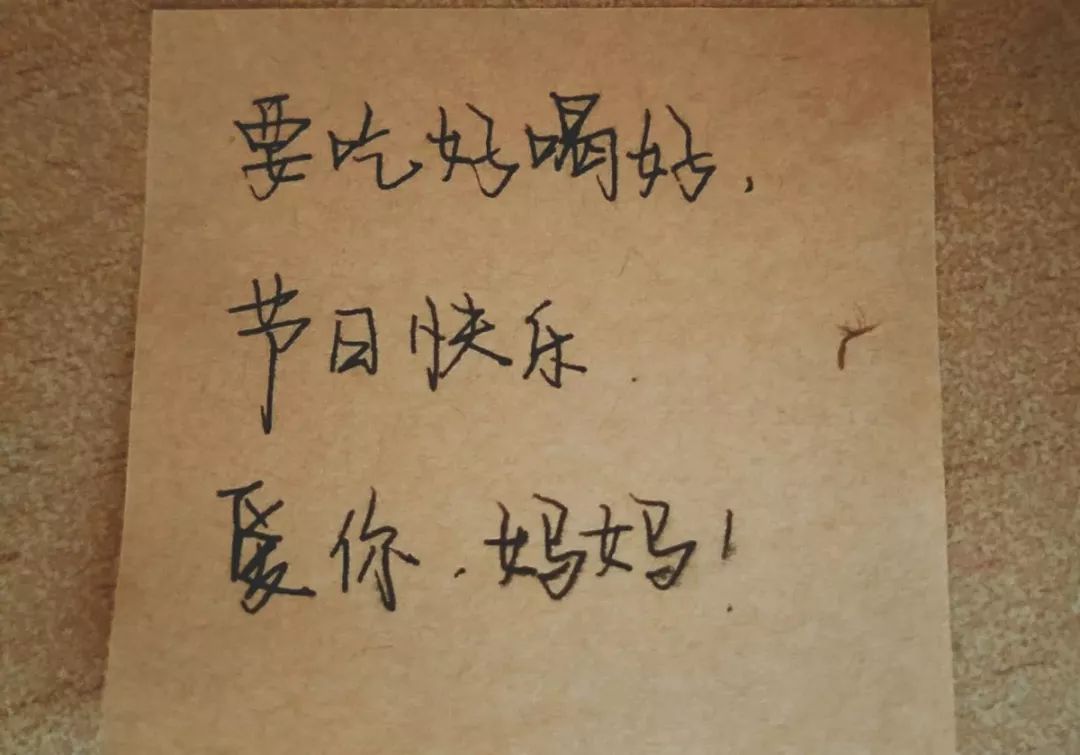 要吃好喝好，
节日快乐.
爱你.妈妈！